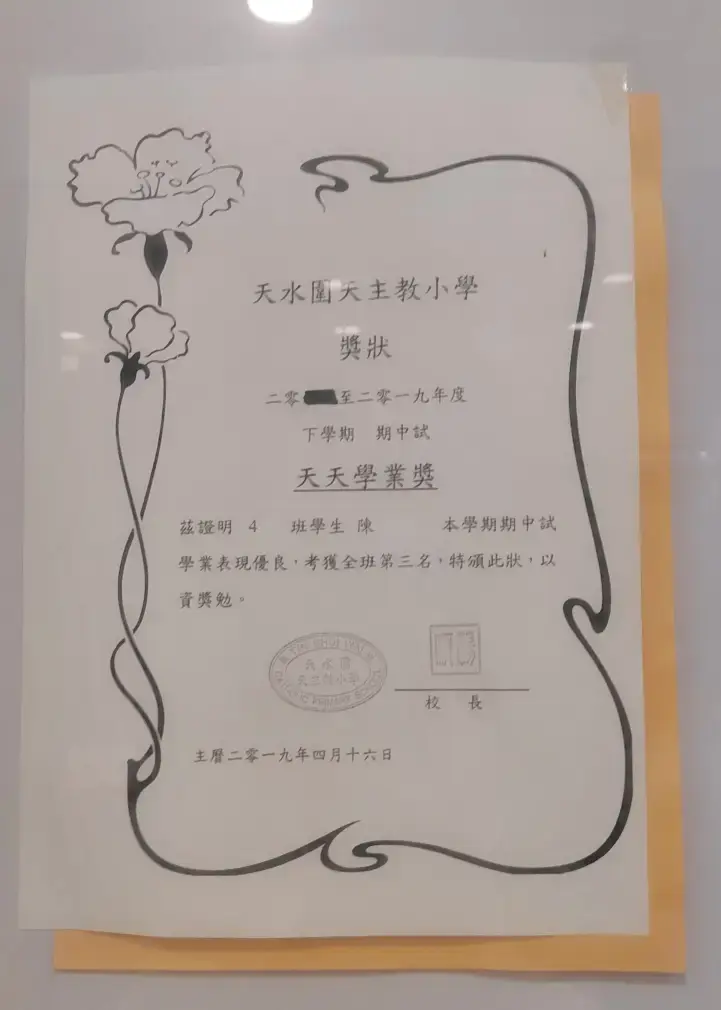 天水圍天主教小學
獎狀
二零 至二零一九年度
下學期 期中試
天天學業獎
茲證明 4 班學生 陳 本學期期中試
學業表現優良，考獲全班第三名，特頒此狀，以
資獎勉。
TIN SHUI WAI
天水圍
天主教小學
CATHOLIC PRIMARY SCHOOL
校 長
主曆二零一九年四月十六日